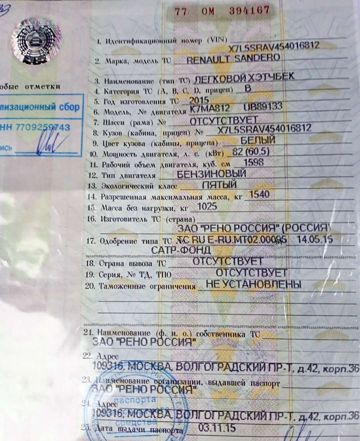 77 ОМ 394167
1. Идентификационный номер (VIN) X7L5SRAV454016812
2. Марка, модель ТС RENAULT SANDERO
3. Наименование (тип ТС) ЛЕГКОВОЙ ХЭТЧБЕК
4. Категория ТС (A, B, C, D, прицеп) B
5. Год изготовления ТС 2015
6. Модель, № двигателя K7MA812 UB89133
7. Шасси (рама) № ОТСУТСТВУЕТ
8. Кузов (кабина, прицеп) № X7L5SRAV454016812
9. Цвет кузова (кабины, прицепа) БЕЛЫЙ
10. Мощность двигателя, л. с. (кВт) 82 (60,5)
11. Рабочий объем двигателя, куб. см 1598
12. Тип двигателя БЕНЗИНОВЫЙ
13. Экологический класс ПЯТЫЙ
14. Разрешенная максимальная масса, кг 1540
15. Масса без нагрузки, кг 1025
16. Изготовитель ТС (страна)
ЗАО "РЕНО РОССИЯ" (РОССИЯ)
17. Одобрение типа ТС ТС RU E-RU.MT02.00095 14.05.15
САТР-ФОНД
18. Страна вывоза ТС ОТСУТСТВУЕТ
19. Серия, № ТД, ТПО ОТСУТСТВУЕТ
20. Таможенные ограничения НЕ УСТАНОВЛЕНЫ
21. Наименование (ф. и. о.) собственника ТС
ЗАО "РЕНО РОССИЯ"
22. Адрес
109316, МОСКВА, ВОЛГОГРАДСКИЙ ПР-Т, д.42, корп.36
23. Наименование организации, выдавшей паспорт
ЗАО "РЕНО РОССИЯ"
24. Адрес
109316, МОСКВА, ВОЛГОГРАДСКИЙ ПР-Т, д.42, корп.36
25. Дата выдачи паспорта 03.11.15
обые отметки
лизационный сбор
НН 7709259743
пись
паспорта